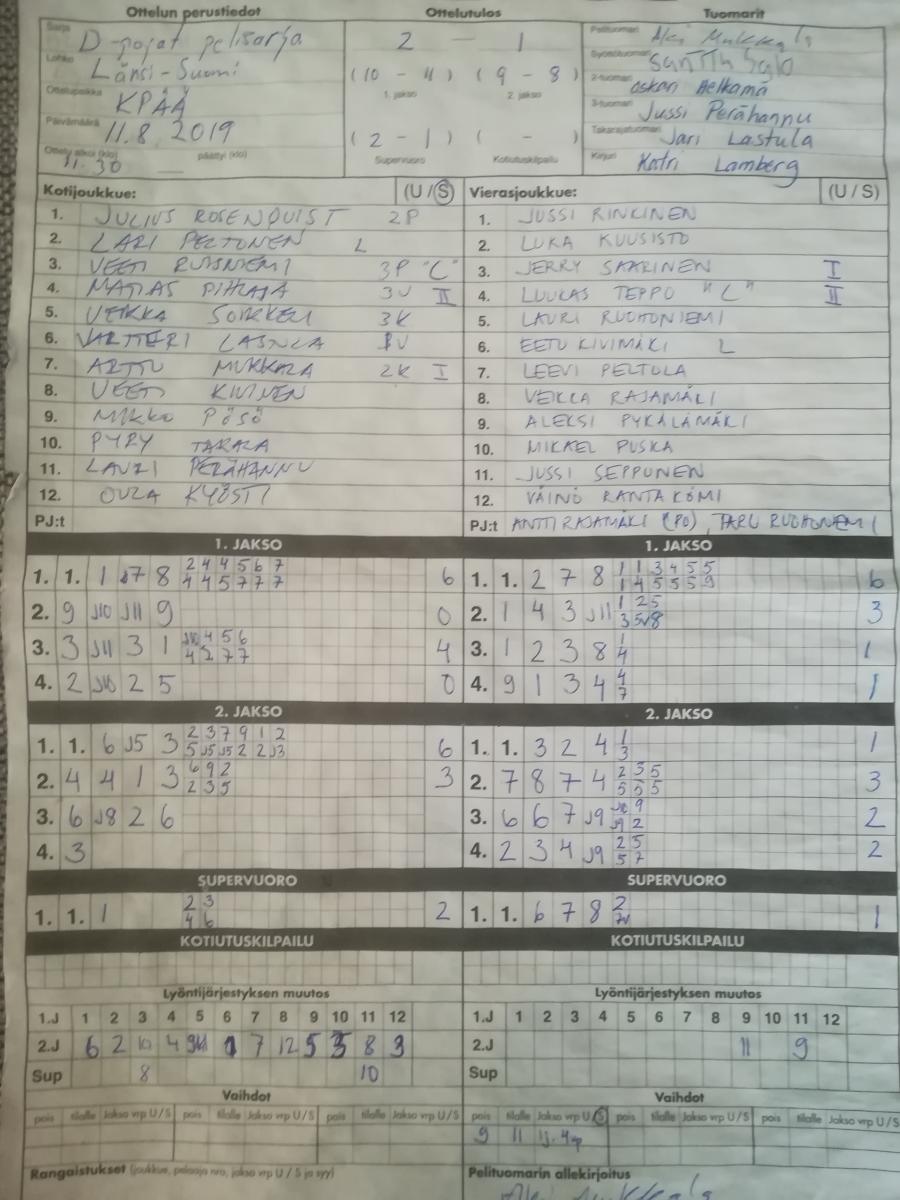 Ottelun perustiedot
Ottelutulos
Tuomarit
Sarja D-pojat pelisarja
Lohko Länsi-Suomi
Ottelupaikka KPÄÄ
Päivämäärä 11.8. 2019
Ottelu alkoi (klo) 11.30 päättyi (klo)
2 - 1
(10 - 11) (9 - 8)
1. jakso 2. jakso
(2 - 1) ( - )
Supervuoro Kotiutuskilpailu
Pelituomari
Syöttötuomari
2-tuomari Oskari Helkamä
3-tuomari Jussi Perähannu
Takarajatuomari Jari Lastula
Kirjuri Katri Lamberg
Kotijoukkue: (U/S)
1. JULIUS ROSENQUIST 2P
2. LARI PELTONEN L
3. VEETI RUISNIEMI 3P "C"
4. MATIAS PIHLAJA 3V II
5. VEIKKA 3K
6. VALTTERI
7. ARTTU MUKKALA 2K I
8. VEETI KIVINEN
9. MIKKO PÖSÖ
10. PYRY
11. LAURI PERÄHANNU
12. KYÖSTI
PJ:t
Vierasjoukkue: (U/S)
1. JUSSI RINKINEN
2. LUKA KUUSISTO
3. JERRY SAARINEN I
4. LUUKAS TEPPO "C" II
5. LAURI RUOHONIEMI
6. EETU KIVIMÄKI L
7. LEEVI PELTOLA
8. VEIKKA RAJAMÄKI
9. ALEKSI PYKÄLÄMÄKI
10. MIKAEL PUSKA
11. JUSSI SEPPONEN
12. VÄINÖ RANTAKÖMI
PJ:t ANTTI RAJAMÄKI (PO), TARU RUOHONIEMI
1. JAKSO
1. 1. 1 J7 8 2 4 4 5 6 7 6
4 4 5 7 7 7
2. 9 J10 J11 9 0
3. 3 J11 3 1 J10 4 5 6 4
4 2 7 7
4. 2 J10 2 5 0
1. JAKSO
1. 1. 2 7 8 1 1 3 4 5 5 6
1 4 5 5 5 9
2. 1 4 3 J11 1 2 5 3
3 5 J8
3. 1 2 3 8 1 1
4
4. 9 1 3 4 4 1
7
2. JAKSO
1. 1. 6 J5 3 2 3 7 9 1 2 6
5 J5 J5 2 2 J3
2. 4 4 1 3 6 9 2 3
2 3 5
3. 6 J8 2 6
4. 3
2. JAKSO
1. 1. 3 2 4 1 1
3
2. 7 8 7 4 2 3 5 3
5 5 5
3. 6 6 7 J9 J10 9 2
J9 2
4. 2 3 4 J9 2 5 2
5 7
SUPERVUORO
1. 1. 1 2 3 2
4 6
SUPERVUORO
1. 1. 6 7 8 2 1
KOTIUTUSKILPAILU
KOTIUTUSKILPAILU
Lyöntijärjestyksen muutos
1.J 1 2 3 4 5 6 7 8 9 10 11 12
2.J 6 2 10 4 1 7 12 5 3 8 9
Sup 8 10
Lyöntijärjestyksen muutos
1.J 1 2 3 4 5 6 7 8 9 10 11 12
2.J 11 9
Sup
Vaihdot
pois tilalle Jakso vrp U/S pois tilalle Jakso vrp U/S pois tilalle Jakso vrp U/S
Vaihdot
pois tilalle Jakso vrp U/S pois tilalle Jakso vrp U/S pois tilalle Jakso vrp U/S
9 11 1j. 4vp
Rangaistukset (joukkue, pelaaja nro, jakso vrp U / S ja syy)
Pelituomarin allekirjoitus